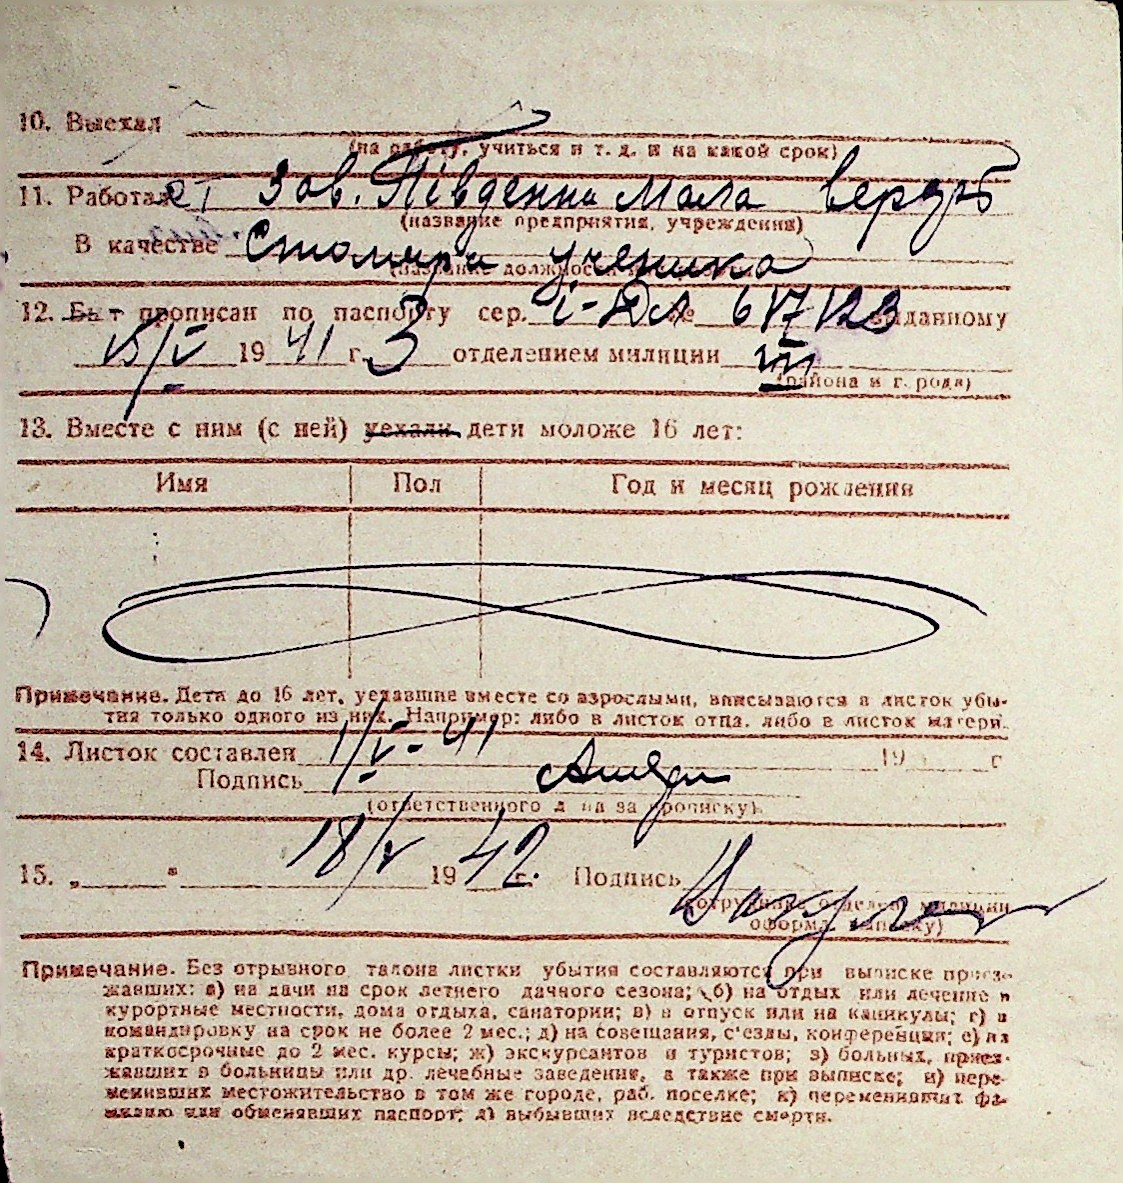 10. Выехал
(на работу, учиться и т. д. и на какой срок)
11. Работает Зав. Південна Мала верфь
(название предприятия, учреждения)
В качестве Столяр ученика
12. Был прописан по паспорту сер. № 617123 выданному
15/V 1941 г. 3 отделением милиции III
(района и города)
13. Вместе с ним (с ней) уехали дети моложе 16 лет:
Имя Пол Год и месяц рождения
Примечание. Дети до 16 лет, уехавшие вместе со взрослыми, вписываются в листок убы-
тия только одного из них. Например: либо в листок отца, либо в листок матери.
14. Листок составлен 1/V-41 19 г
Подпись
(ответственного лица за прописку)
15. „ " 18/V 1942 г. Подпись
(сотрудника отделен. милиции
оформ. выписку)
Примечание. Без отрывного талона листки убытия составляются при выписке приез-
жавших: а) на дачи на срок летнего дачного сезона; б) на отдых или лечение в
курортные местности, дома отдыха, санатории; в) в отпуск или на каникулы; г) в
командировку на срок не более 2 мес.; д) на совещания, с'езды, конференции; е) на
краткосрочные до 2 мес. курсы; ж) экскурсантов и туристов; з) больных, приез-
жавших в больницы или др. лечебные заведения, а также при выписке; и) пере-
менивших местожительство в том же городе, раб. поселке; к) переменивших фа-
милию или обменявших паспорт; л) выбывших вследствие смерти.